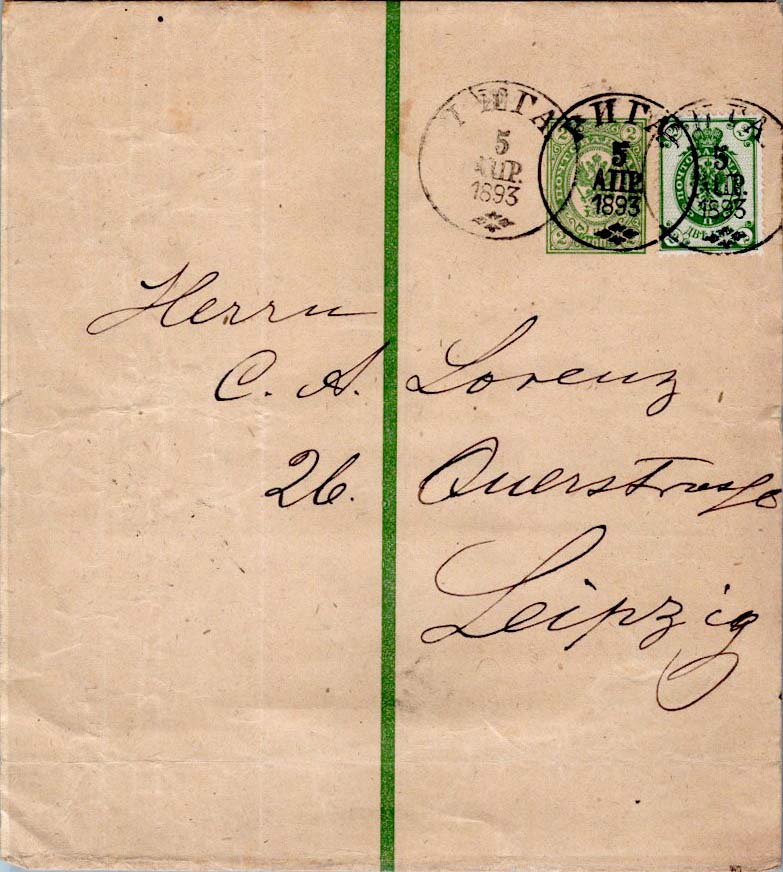 РИГА РИГА РИГА
5 5 5
АПР. АПР. АПР.
1893 1893 1893
2 2
ДВЕ
Herrn
C. A. Lorenz
26. Querstrasse
Leipzig